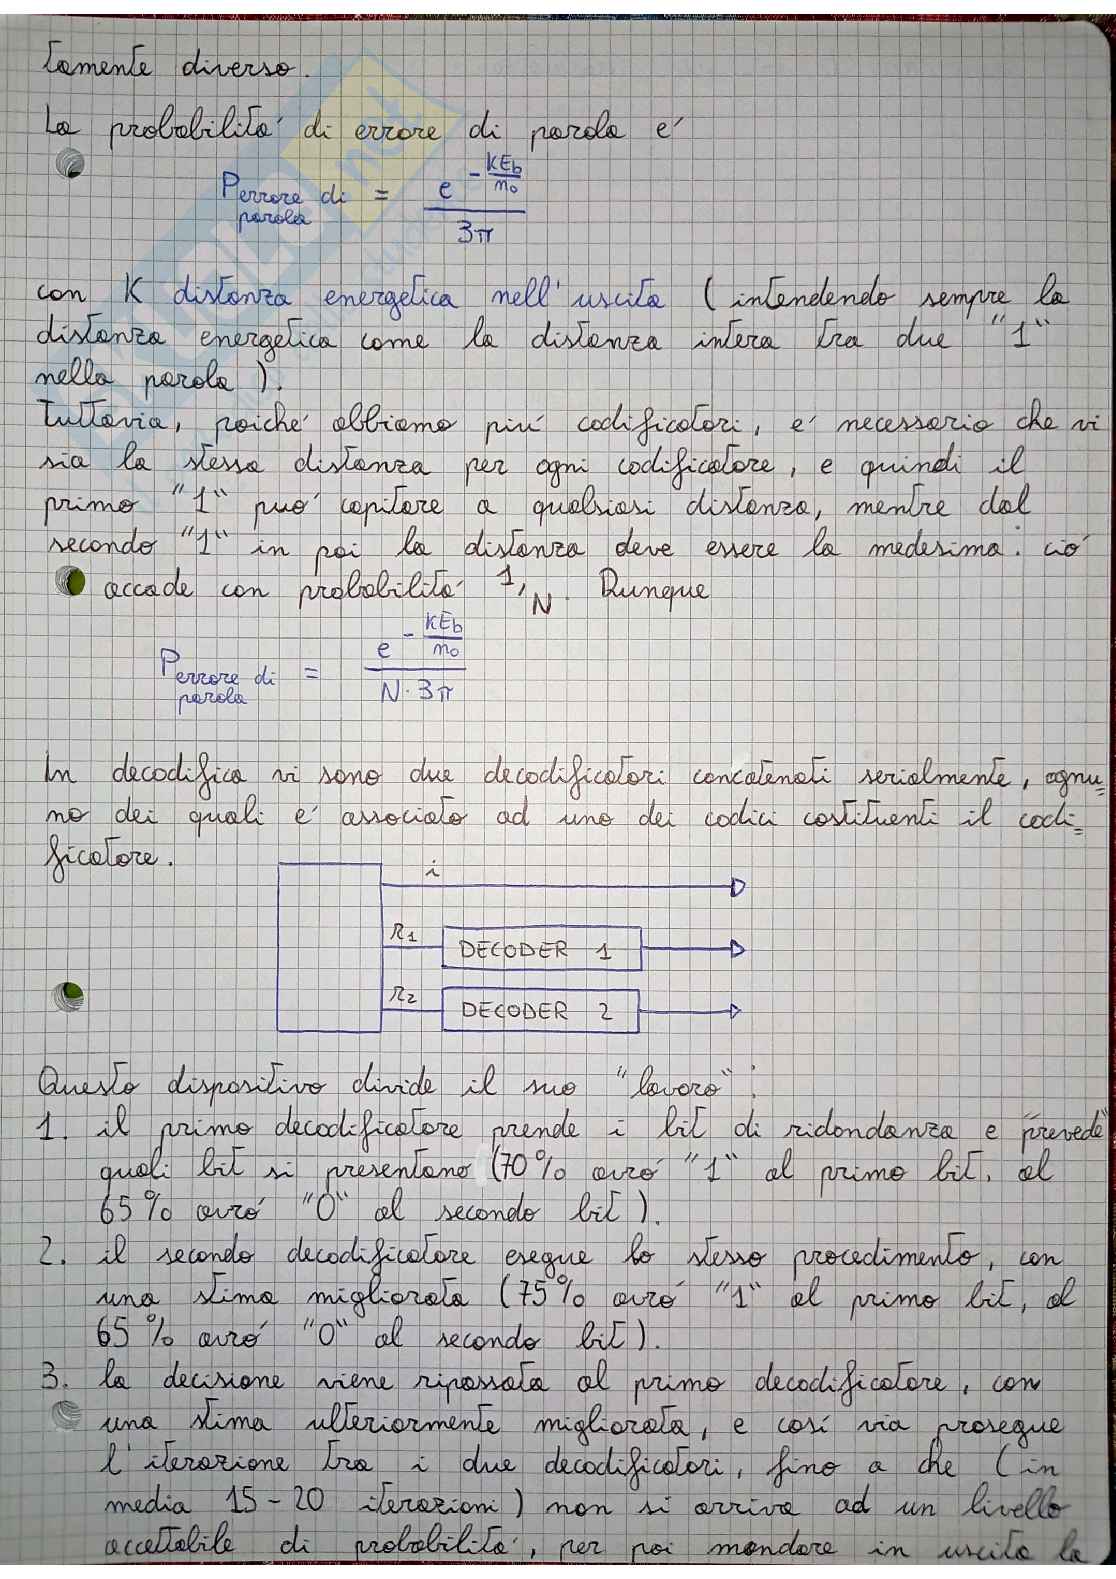 tamente diverso.
La probabilita' di errore di parola e'
P errore di parola = e^(-KEb/n0) / 3π
con K distanza energetica nell'uscita ( intendendo sempre la
distanza energetica come la distanza intera tra due "1"
nella parola ).
Tuttavia, poiche' abbiamo piu' codificatori, e' necessario che vi
sia la stessa distanza per ogni codificatore, e quindi il
primo "1" puo' capitare a qualsiasi distanza, mentre dal
secondo "1" in poi la distanza deve essere la medesima: cio'
accade con probabilita' 1/N. Dunque
P errore di parola = e^(-KEb/n0) / N·3π
In decodifica vi sono due decodificatori concatenati serialmente, ognu=
no dei quali e' associato ad uno dei codici costituenti il codi=
ficatore.
i
R1 DECODER 1
R2 DECODER 2
Questo dispositivo divide il suo "lavoro":
1. il primo decodificatore prende i bit di ridondanza e "prevede"
quali bit si presentano (70% avro' "1" al primo bit, al
65% avro' "0" al secondo bit ).
2. il secondo decodificatore esegue lo stesso procedimento, con
una stima migliorata (75% avro' "1" al primo bit, al
65% avro' "0" al secondo bit).
3. la decisione viene ripassata al primo decodificatore, con
una stima ulteriormente migliorata, e cosi' via prosegue
l'iterazione tra i due decodificatori, fino a che ( in
media 15-20 iterazioni ) non si arriva ad un livello
accettabile di probabilita', per poi mandare in uscita la